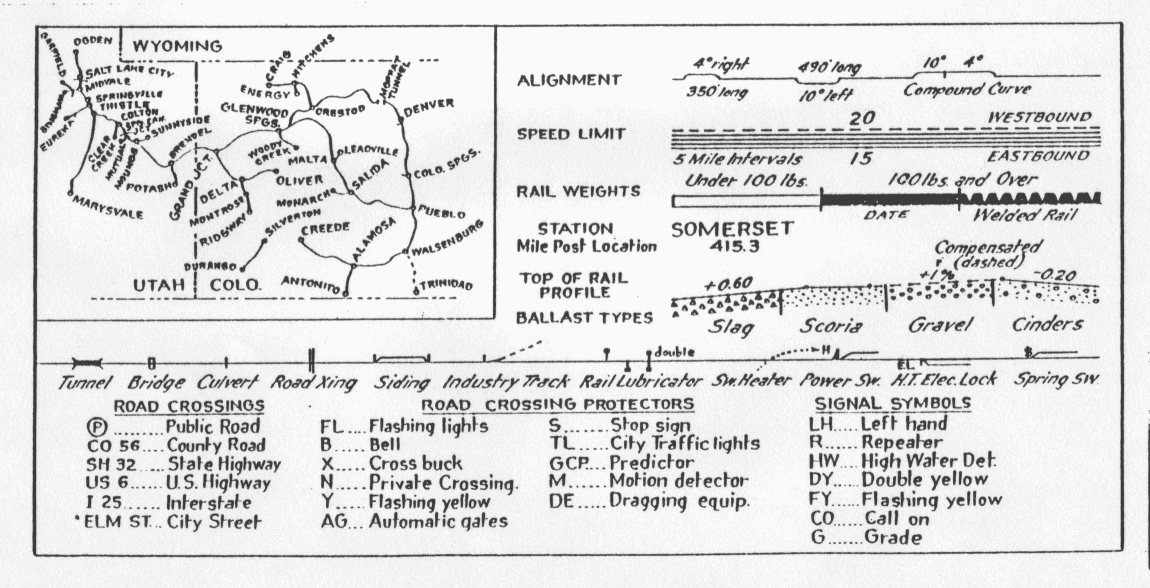 WYOMING
OGDEN
GARFIELD
SALT LAKE CITY
MIDVALE
BINGHAM
SPRINGVILLE
THISTLE
EUREKA
COLTON
SUNNYSIDE
CLEAR CREEK
MOUNDS
BRENDEL
POTASH
MARYSVALE
GRAND JCT.
CRAIG
HITCHENS
ENERGY
MOFFAT TUNNEL
GLENWOOD SPGS.
ORESTOD
DENVER
WOODY CREEK
MALTA
LEADVILLE
COLO. SPGS.
DELTA
OLIVER
MONARCH
SALIDA
MONTROSE
RIDGWAY
SILVERTON
CREEDE
PUEBLO
ALAMOSA
WALSENBURG
DURANGO
ANTONITO
TRINIDAD
UTAH
COLO.
ALIGNMENT
4° right
490' long
10° 4°
350' long
10° left
Compound Curve
SPEED LIMIT
20
WESTBOUND
5 Mile Intervals
15
EASTBOUND
RAIL WEIGHTS
Under 100 lbs.
100 lbs. and Over
DATE
Welded Rail
STATION
Mile Post Location
SOMERSET
415.3
TOP OF RAIL
PROFILE
Compensated
(dashed)
+0.60
+1%
-0.20
BALLAST TYPES
Slag
Scoria
Gravel
Cinders
double
H
EL
S
Tunnel Bridge Culvert Road Xing Siding Industry Track Rail Lubricator Sw. Heater Power Sw. H.T. Elec. Lock Spring Sw.
ROAD CROSSINGS
P ........ Public Road
CO 56 .... County Road
SH 32 .... State Highway
US 6 ..... U.S. Highway
I 25 ..... Interstate
"ELM ST... City Street
ROAD CROSSING PROTECTORS
FL .... Flashing lights
B ..... Bell
X ..... Cross buck
N ..... Private Crossing.
Y ..... Flashing yellow
AG .... Automatic gates
S ...... Stop sign
TL ..... City Traffic lights
GCP.... Predictor
M ...... Motion detector
DE ..... Dragging equip.
SIGNAL SYMBOLS
LH .... Left hand
R ..... Repeater
HW.... High Water Det.
DY .... Double yellow
FY .... Flashing yellow
CO..... Call on
G....... Grade